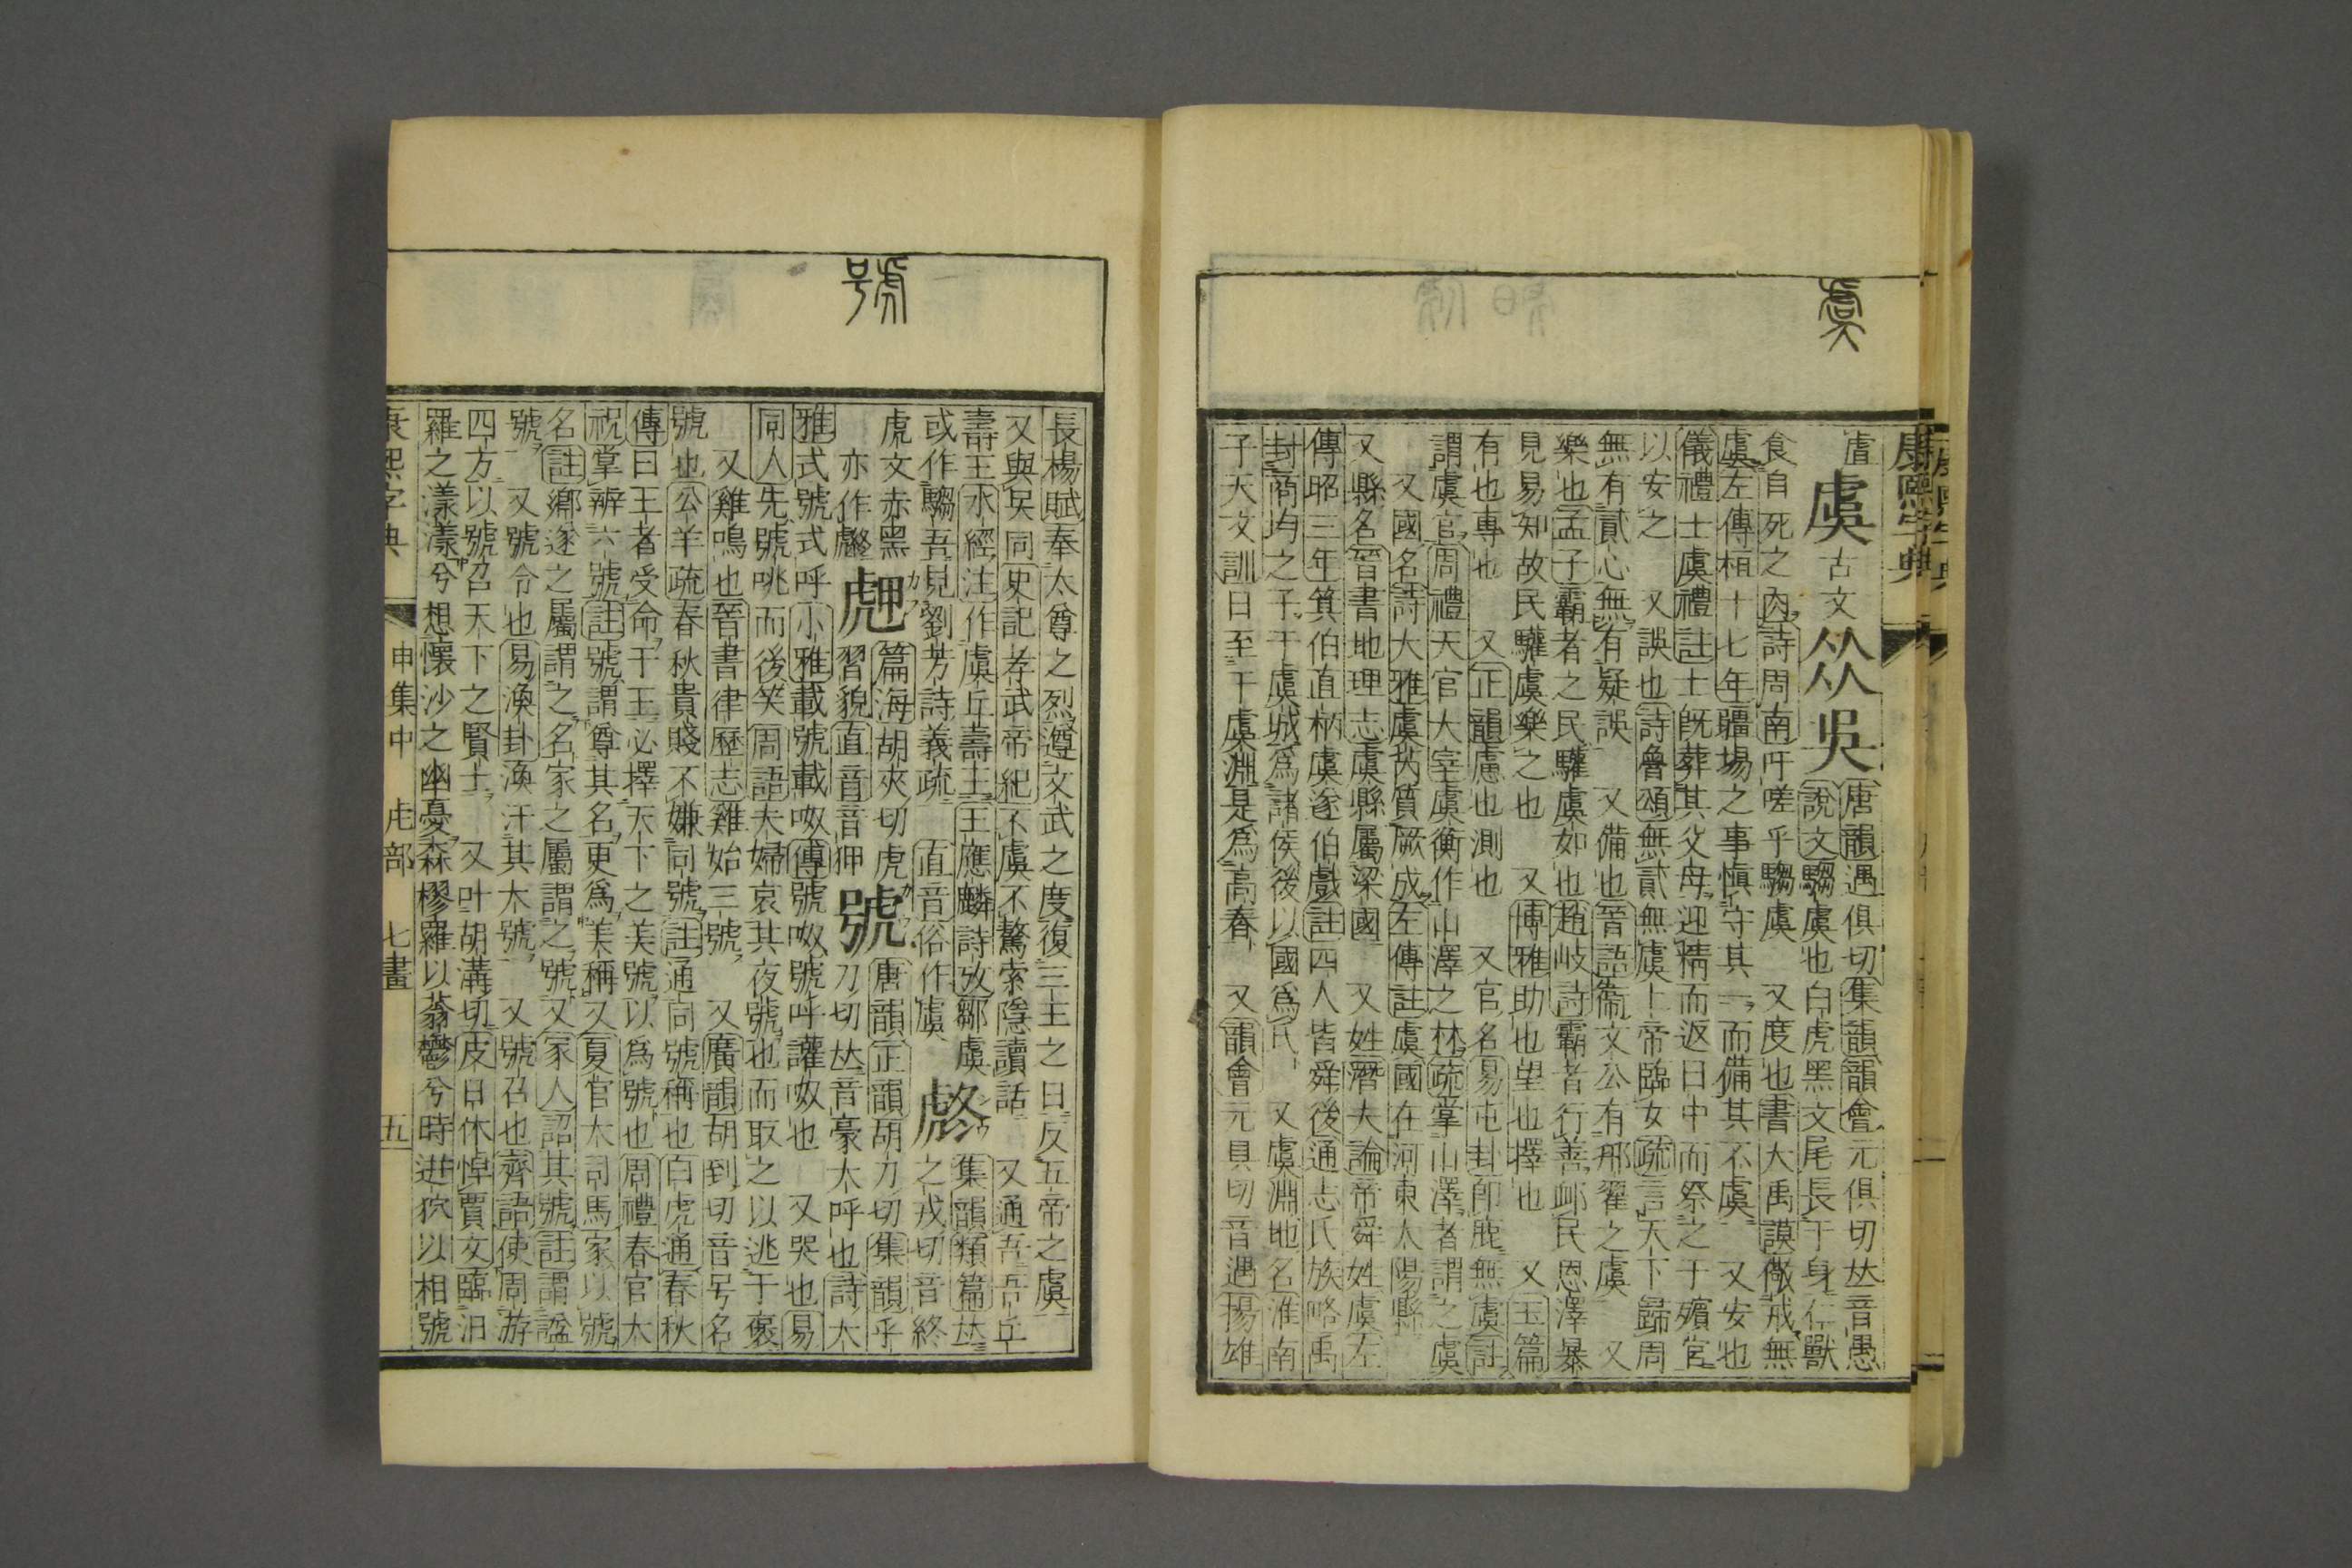 虞
康熙字典
虞 古文 𠈌 吳 唐韻遇俱切集韻韻會元俱切𠀤音愚
說文騶虞也白虎黑文尾長于身仁獸
食自死之肉詩周南吁嗟乎騶虞 又度也書大禹謨儆戒無
虞左傳桓十七年疆埸之事愼守其一而備其不虞 又安也
儀禮士虞禮註士旣葬其父母迎精而返日中而祭之于殯宮
以安之 又誤也詩魯頌無貳無虞上帝臨女疏言天下歸周
無有貳心無有疑誤 又備也晉語衞文公有邢翟之虞 又
樂也孟子霸者之民驩虞如也趙岐註霸者行善䘏民恩澤暴
見易知故民驩虞樂之也 又博雅助也望也擇也 又玉篇
有也專也 又正韻慮也測也 又官名易屯卦卽鹿無虞註
謂虞官周禮天官大宰虞衡作山澤之林疏掌山澤者謂之虞
又國名詩大雅虞芮質厥成左傳註虞國在河東大陽縣
又縣名晉書地理志虞縣屬梁國 又姓潛夫論帝舜姓虞左
傳昭三年箕伯直柄虞遂伯戲註四人皆舜後通志氏族略禹
封商均之子于虞城爲諸侯後以國爲氏 又虞淵地名淮南
子天文訓日至于虞淵是爲高舂 又韻會元具切音遇揚雄
號
長楊賦奉太尊之烈遵文武之度復三王之田反五帝之虞
又與吳同史記孝武帝紀不虞不驁索隱讀話 又通吾吾丘
壽王水經注作虞丘壽王王應麟詩攷鄒虞
或作騶吾見劉芳詩義疏 直音俗作虞 𧇝 集韻類篇𠀤
之戎切音終
虎文赤黑
亦作𧇝 𧇡 篇海胡夾切虎
習貌直音音狎 號 唐韻正韻胡刀切集韻乎
刀切𠀤音豪大呼也詩大
雅式號式呼小雅載號載呶傳號呶號呼讙呶也 又哭也易
同人先號咷而後笑周語夫婦哀其夜號也而取之以逃于褒
又雞鳴也晉書律歷志雞始三號 又廣韻胡到切音号名
號也公羊疏春秋貴賤不嫌同號註通同號稱也白虎通春秋
傳曰王者受命于王必擇天下之美號以爲號也周禮春官大
祝掌辨六號註號謂尊其名更爲美稱又夏官大司馬家以號
名註鄕遂之屬謂之名家之屬謂之號又家人詔其號註謂諡
號 又號令也易渙卦渙汗其大號 又號召也齊語使周游
四方以號召天下之賢士 又叶胡溝切皮日休悼賈文臨汨
羅之漾漾兮想懷沙之幽憂森樛蘿以蓊鬱兮時迸狖以相號
康熙字典 申集中 虍部 七畫 五